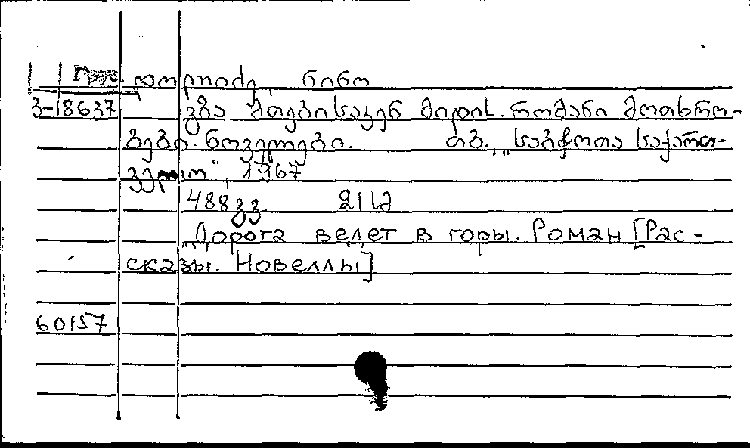 დოლიძე, ნინო
3-18637 გზა მთებისაკენ მიდის. რომანი მოთხრო-
ბები. ნოველები. თბ., „საბჭოთა საქართ-
ველო", 1967
488 გვ.
Дорога ведет в горы. Роман [Рас-
сказы. Новеллы]
60157